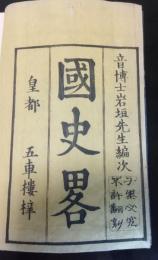 音博士岩垣先生編次
不許翻刻
國史畧
皇都 五車樓梓